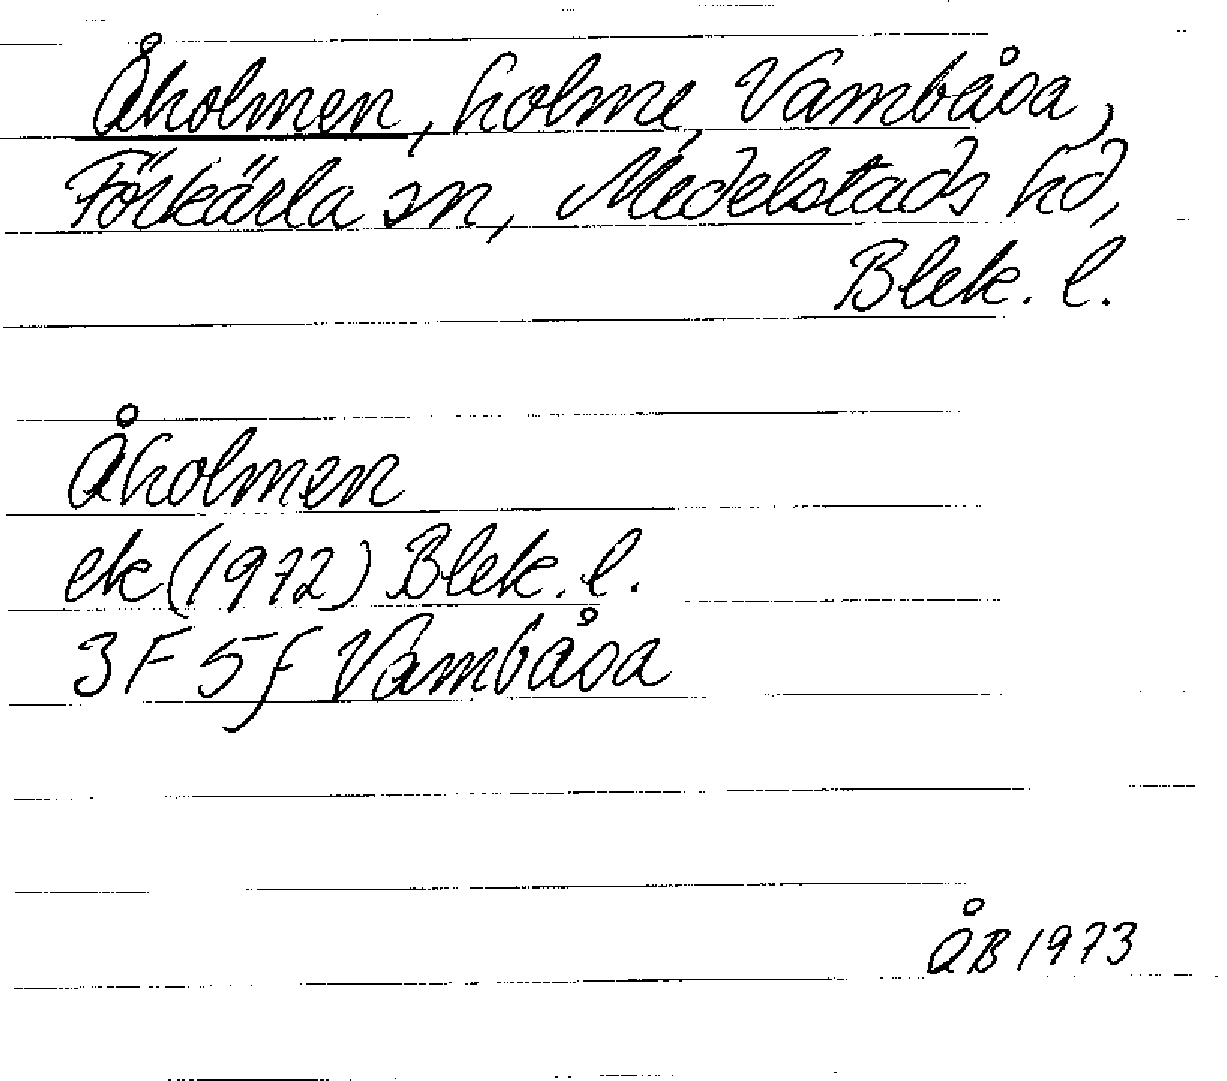 Åholmen, holme, Vambåsa,
Förkärla sn, Medelstads hd,
Blek. l.
Åholmen
ek (1972) Blek. l.
3F 5f Vambåsa
ÅB 1973